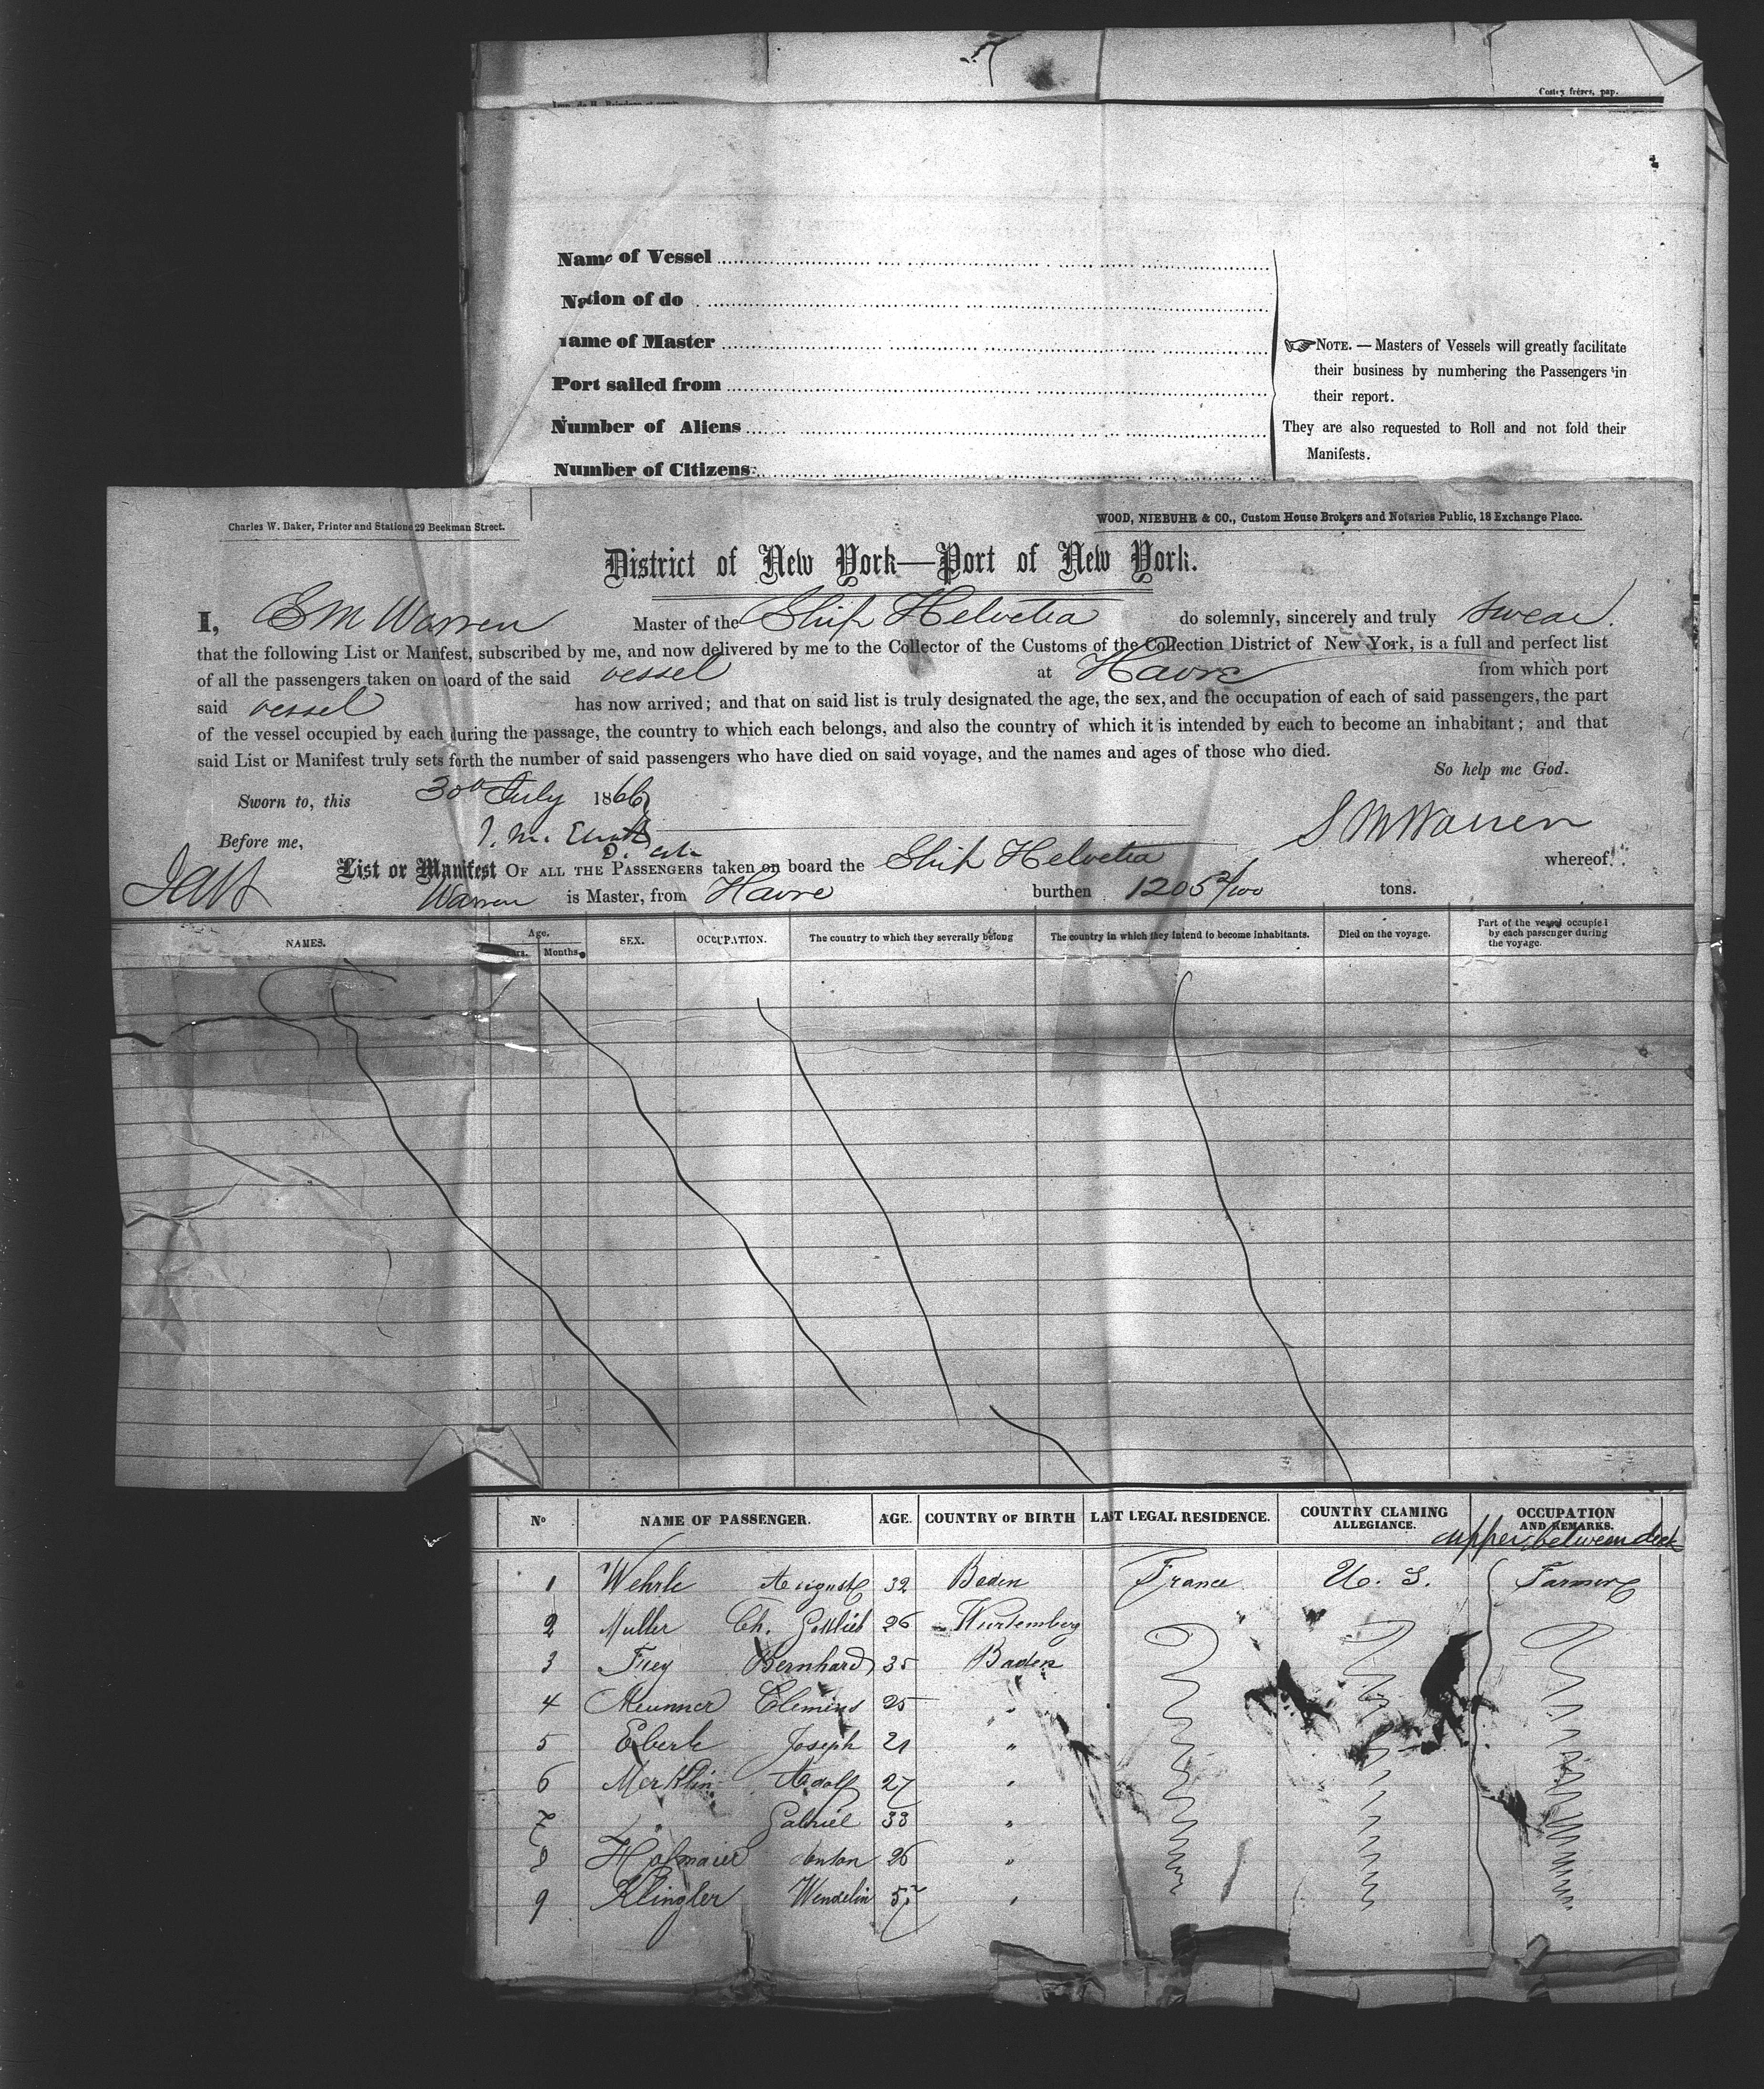 Costey frères, pap.
Name of Vessel
Nation of do
Name of Master
Port sailed from
Number of Aliens
Number of Citizens
NOTE. — Masters of Vessels will greatly facilitate
their business by numbering the Passengers in
their report.
They are also requested to Roll and not fold their
Manifests.
Charles W. Baker, Printer and Statione 29 Beekman Street.
WOOD, NIEBUHR & CO., Custom House Brokers and Notaries Public, 18 Exchange Place.
District of New York—Port of New York.
I, S M Warren Master of the Ship Helvetia do solemnly, sincerely and truly swear.
that the following List or Manfest, subscribed by me, and now delivered by me to the Collector of the Customs of the Collection District of New York, is a full and perfect list
of all the passengers taken on board of the said vessel at Havre from which port
said vessel has now arrived; and that on said list is truly designated the age, the sex, and the occupation of each of said passengers, the part
of the vessel occupied by each during the passage, the country to which each belongs, and also the country of which it is intended by each to become an inhabitant; and that
said List or Manifest truly sets forth the number of said passengers who have died on said voyage, and the names and ages of those who died.
So help me God.
Sworn to, this 30th July 1866
Before me, S M Warren
List or Manifest OF ALL THE PASSENGERS taken on board the Ship Helvetia whereof
Warren is Master, from Havre burthen 1205 2/100 tons.
NAMES. Age. Months. SEX. OCCUPATION. The country to which they severally belong The country in which they intend to become inhabitants. Died on the voyage. Part of the vessel occupied by each passenger during the voyage.
No NAME OF PASSENGER. AGE. COUNTRY OF BIRTH LAST LEGAL RESIDENCE. COUNTRY CLAMING ALLEGIANCE. OCCUPATION AND REMARKS.
upper between deck
1 Wehrle August 32 Baden France U. S. Farmer
2 Muller Ch. Gottlieb 26 Wurtemberg
3 Frey Bernhard 35 Baden
4 Clemens 25 "
5 Eberle Joseph 21 "
6 Merklin Adolf 27 "
7 " Gabriel 33 "
8 Hofmaier Anton 26 "
9 Klingler Wendelin 5 "